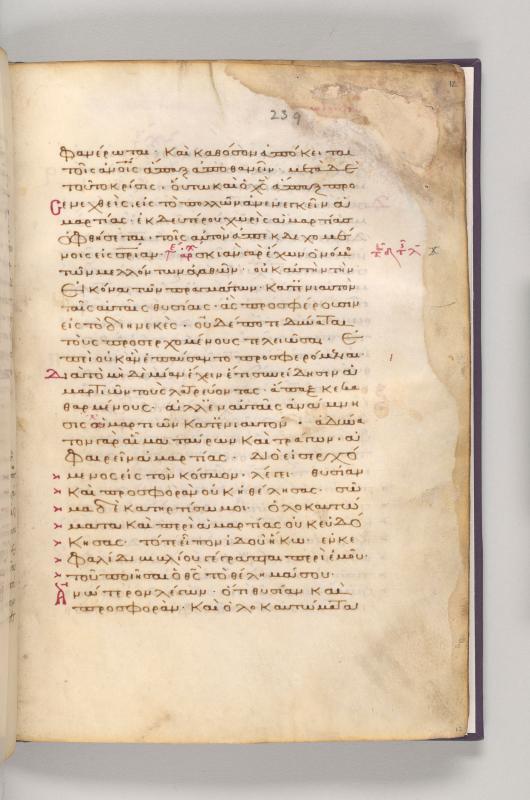 239
φανέρωται· Καὶ καθόσον ἀπόκειται
τοῖς ἀνοις ἅπαξ ἀποθανεῖν· μετὰ δὲ
τοῦτο κρίσις· οὕτω καὶ ὁ χς ἅπαξ προ
σενεχθεὶς εἰς τὸ πολλῶν ἀνενεγκεῖν ἁ
μαρτίας· ἐκ δευτέρου χωρὶς ἁμαρτίας
ὀφθήσεται· τοῖς αὐτὸν ἀπεκδεχομέ
νοις εἰς σρίαν· σκιὰν γὰρ ἔχων ὁ νόμος
τῶν μελλόντων ἀγαθῶν· οὐκ αὐτὴν τὴν
εἰκόνα τῶν πραγμάτων· Κατ' ἐνιαυτὸν
ταῖς αὐταῖς θυσίαις· ἃς προσφέρουσιν
εἰς τὸ διηνεκὲς· οὐδέποτε δύναται
τοὺς προσερχομένους τελειῶσαι· Ἐ
πεὶ οὐκ ἂν ἐπαύσαντο προσφερόμεναι·
Διὰ τὸ μηδεμίαν ἔχειν ἔτι συνείδησιν ἁ
μαρτιῶν τοὺς λατρεύοντας· ἅπαξ κεκα
θαρμένους· ἀλλ' ἐν αὐταῖς ἀνάμνη
σις ἁμαρτιῶν Κατ' ἐνιαυτόν· ἀδύνα
τον γὰρ αἷμα ταύρων Καὶ τράγων· ἀ
φαιρεῖν ἁμαρτίας· Διὸ εἰσερχό
μενος εἰς τὸν κόσμον· λέγει· θυσίαν
Καὶ προσφορὰν οὐκ ἠθέλησας· σῶ
μα δὲ κατηρτίσω μοι· ὁλοκαυτώ
ματα Καὶ περὶ ἁμαρτίας οὐκ εὐδό
κησας· τότε εἶπον ἰδοὺ ἥκω· ἐν κε
φαλίδι βιβλίου γέγραπται περὶ ἐμοῦ·
τοῦ ποιῆσαι ὁ θς τὸ θέλημά σου·
Ἀνώτερον λέγων· ὅτι θυσίαν Καὶ
προσφορὰν· Καὶ ὁλοκαυτώματα